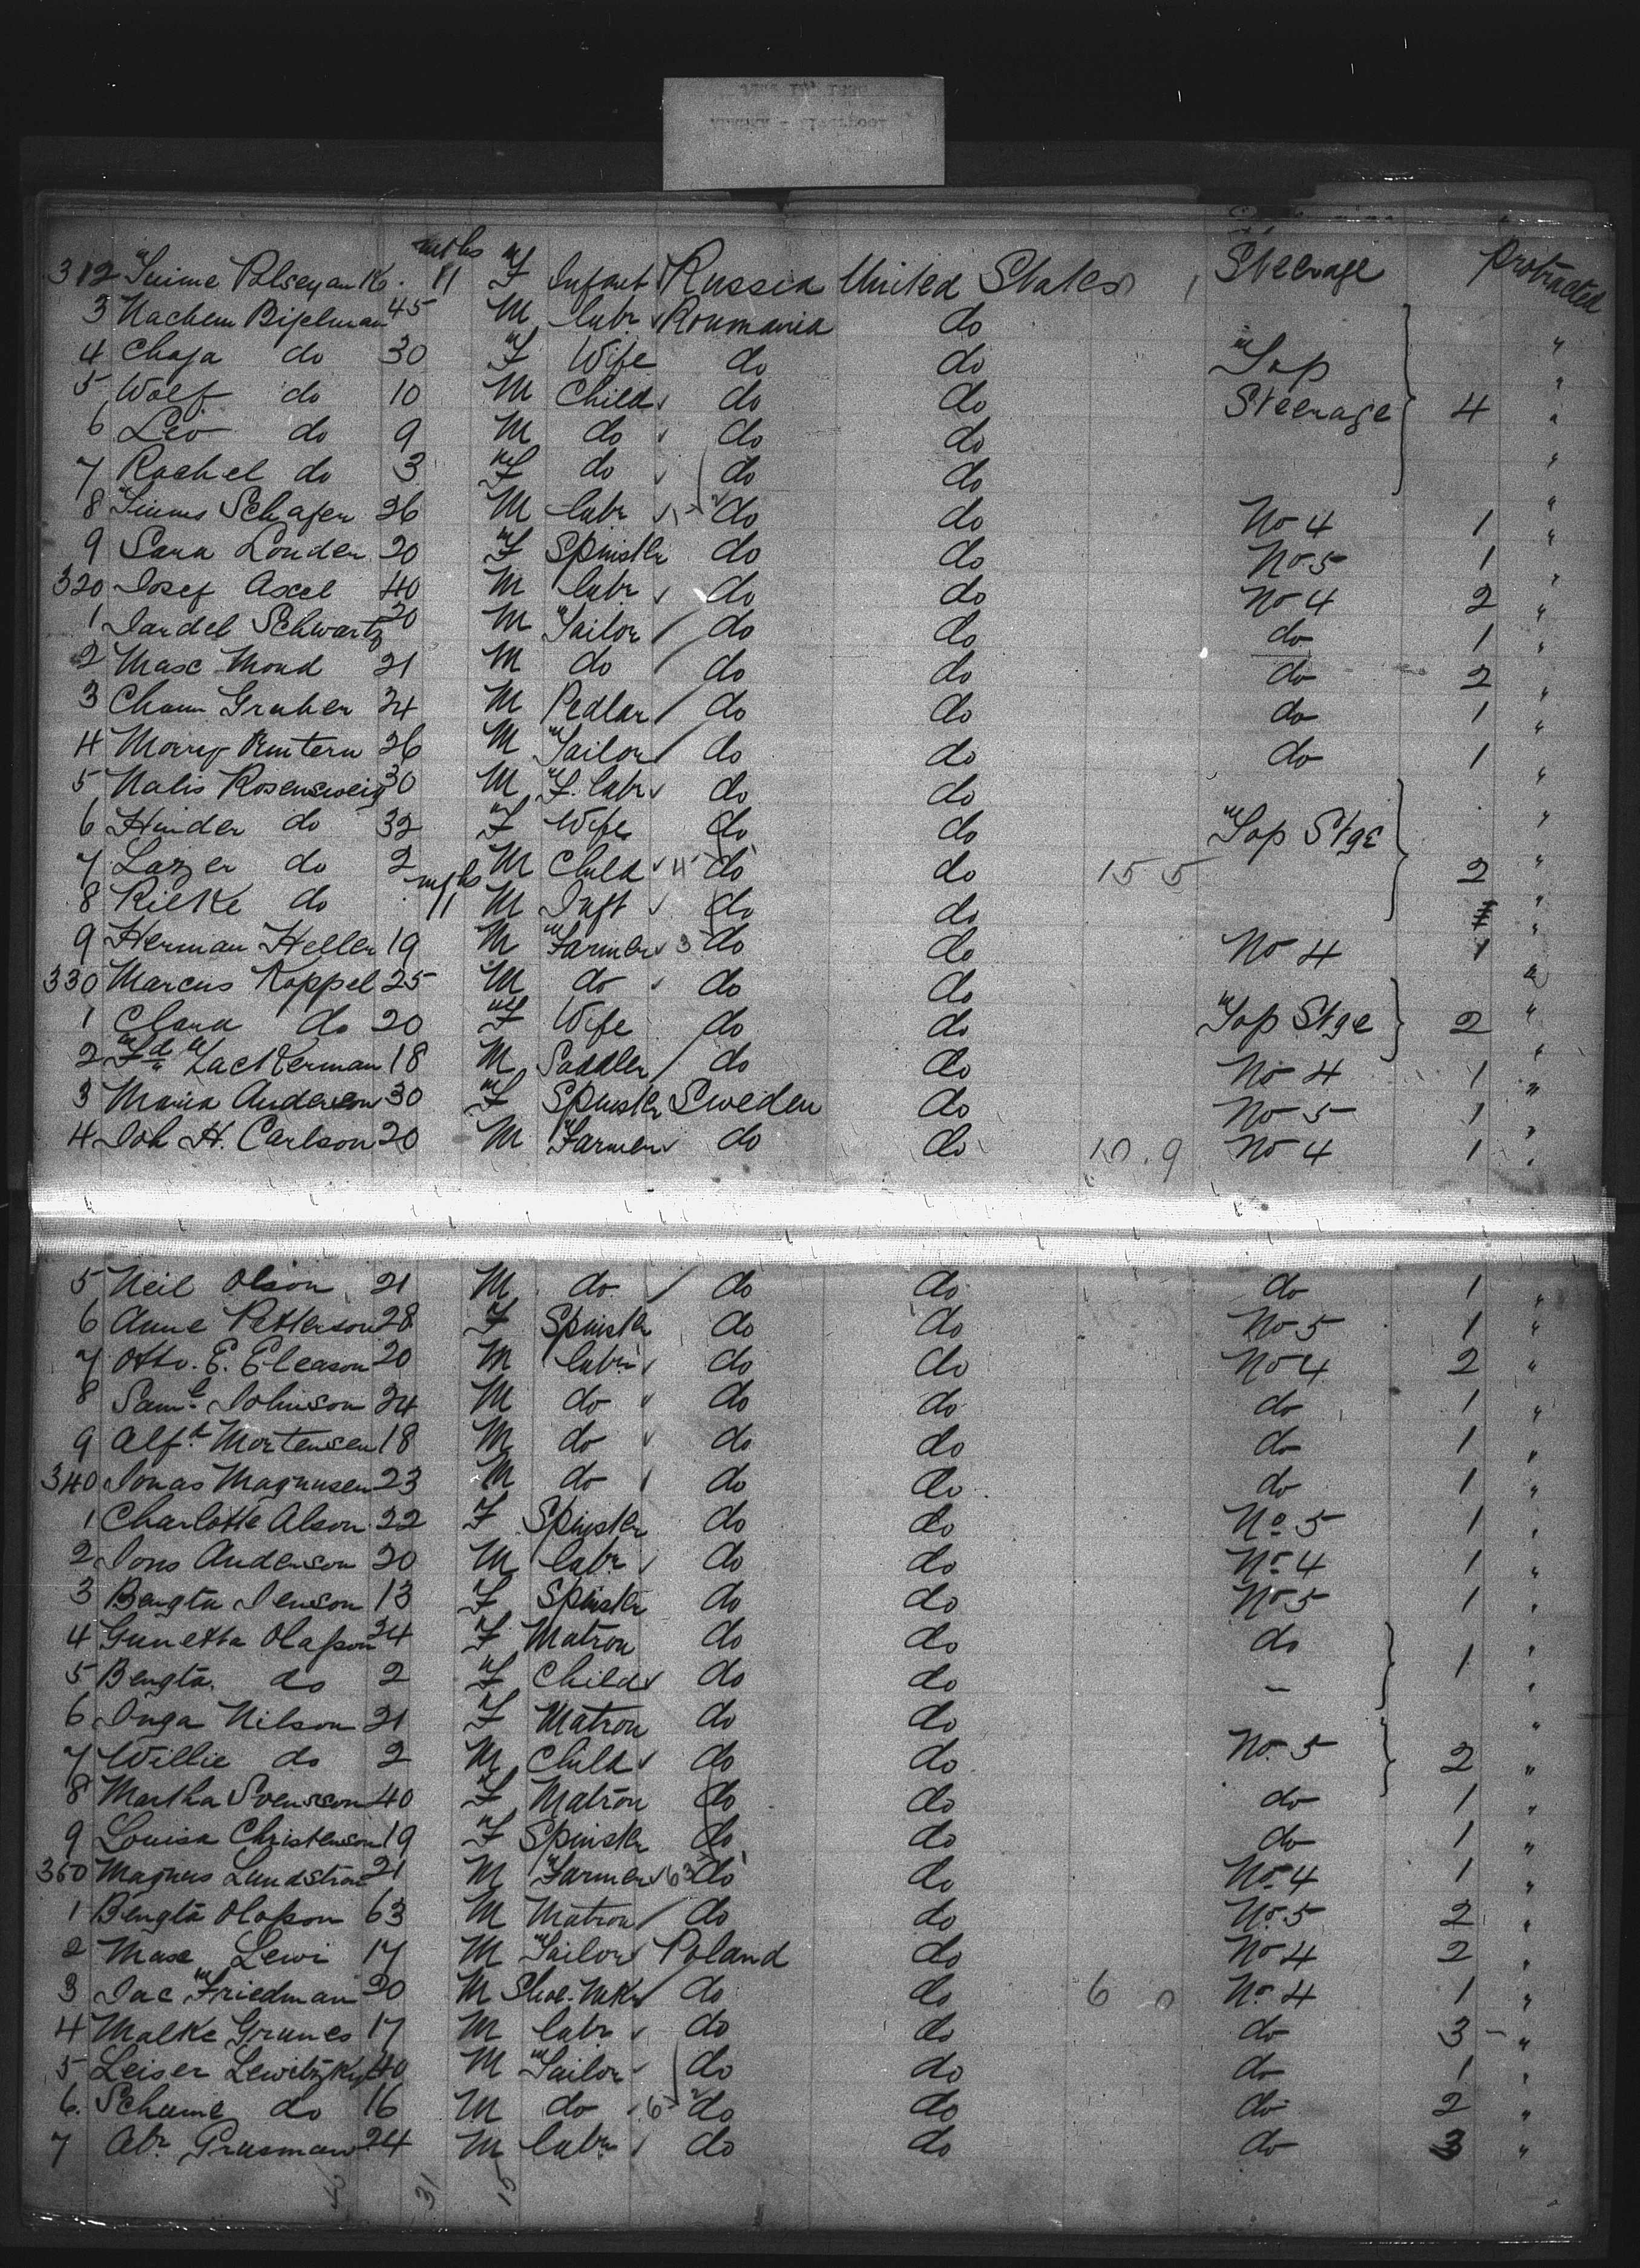 mths
312 Polseyanik 11 F Infant Russia United States Steerage Protracted
3 Nachem Bijelman 45 M labr Roumania do "
4 Chaja do 30 F Wife do do Top "
5 Wolf do 10 M Child do do Steerage 4 "
6 Leo do 9 M do do do "
7 Rachel do 3 F do do do "
8 Schafer 26 M labr do do No 4 1 "
9 Sara London 20 F Spinster do do No 5 1 "
320 Josef Axel 40 M labr do do No 4 2 "
1 Jandel Schwartz 20 M Tailor do do do 1 "
2 Max Mond 21 M do do do do 2 "
3 Chaim Gruber 24 M Pedlar do do do 1 "
4 26 M Tailor do do do 1 "
5 Nalis Rosensweig 30 M F. labr do do "
6 Hinder do 32 F Wife do do Top Stge "
7 Lazer do 2 M Child 4 do do 15 5 2 "
8 Rielke do mths 11 M Inft do do "
9 Herman Heller 19 M Farmer 3 do do No 4 1 "
330 Marcus Koppel 25 M do do do "
1 Clara do 20 F Wife do do Top Stge 2 "
2 Fd Lackerman 18 M Saddler do do No 4 1 "
3 Maria Anderson 30 F Spinster Sweden do No 5 1 "
4 Joh H. Carlson 20 M Farmer do do 10.9 No 4 1 "
5 Neil Olson 21 M do do do do 1 "
6 Anne Petterson 28 F Spinster do do No 5 1 "
7 Otto. E. Eleason 20 M labr do do No 4 2 "
8 Saml Johnson 24 M do do do do 1 "
9 Alfd Mortensen 18 M do do do do 1 "
340 Jonas Magnusen 23 M do do do do 1 "
1 Charlotte Alson 22 F Spinster do do No 5 1 "
2 Jons Anderson 20 M labr do do No 4 1 "
3 Bengta Jenson 13 F Spinster do do No 5 1 "
4 Gunetta Olafson 24 F Matron do do do 1 "
5 Bengta do 2 F Child do do – "
6 Inga Nilson 21 F Matron do do "
7 Willie do 2 M Child do do No. 5 2 "
8 Martha Svensson 40 F Matron do do do 1 "
9 Louisa Christenson 19 F Spinster do do do 1 "
350 Magnus Lundstrom 21 M Farmer 63 do do No 4 1 "
1 Bengta Olafson 63 M Matron do do No. 5 2 "
2 Max Lewi 17 M Tailor Poland do No 4 2 "
3 Jac Friedman 20 M Shoe. Mkr do do 6 0 No. 4 1 "
4 Malke Grunes 17 M labr do do do 3 "
5 Leiser Lewitzky 40 M Tailor do do do 1 "
6. Schume do 16 M do 6 do do do 2 "
7 Abr. Grusman 24 M labr do do do 3 "
31 15